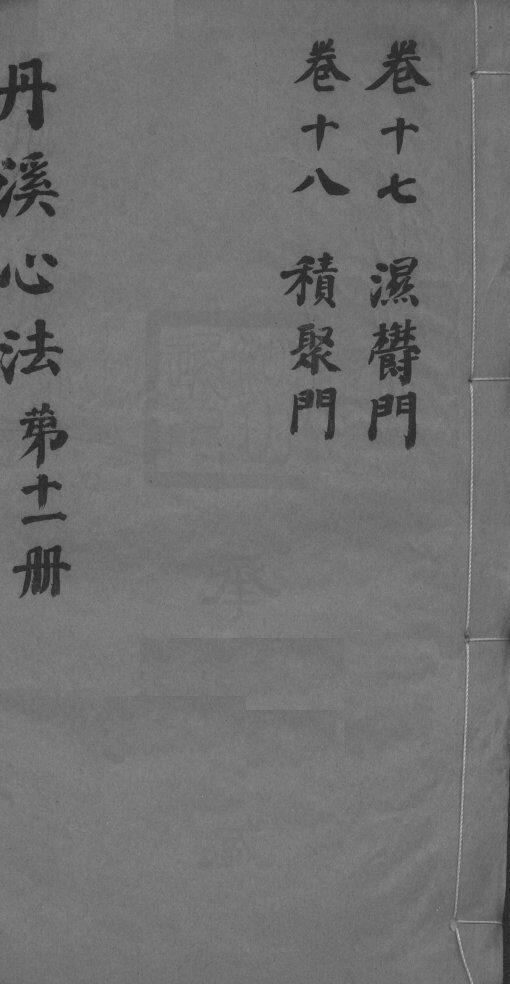 卷十七 濕欝門
卷十八 積聚門
丹溪心法第十一册